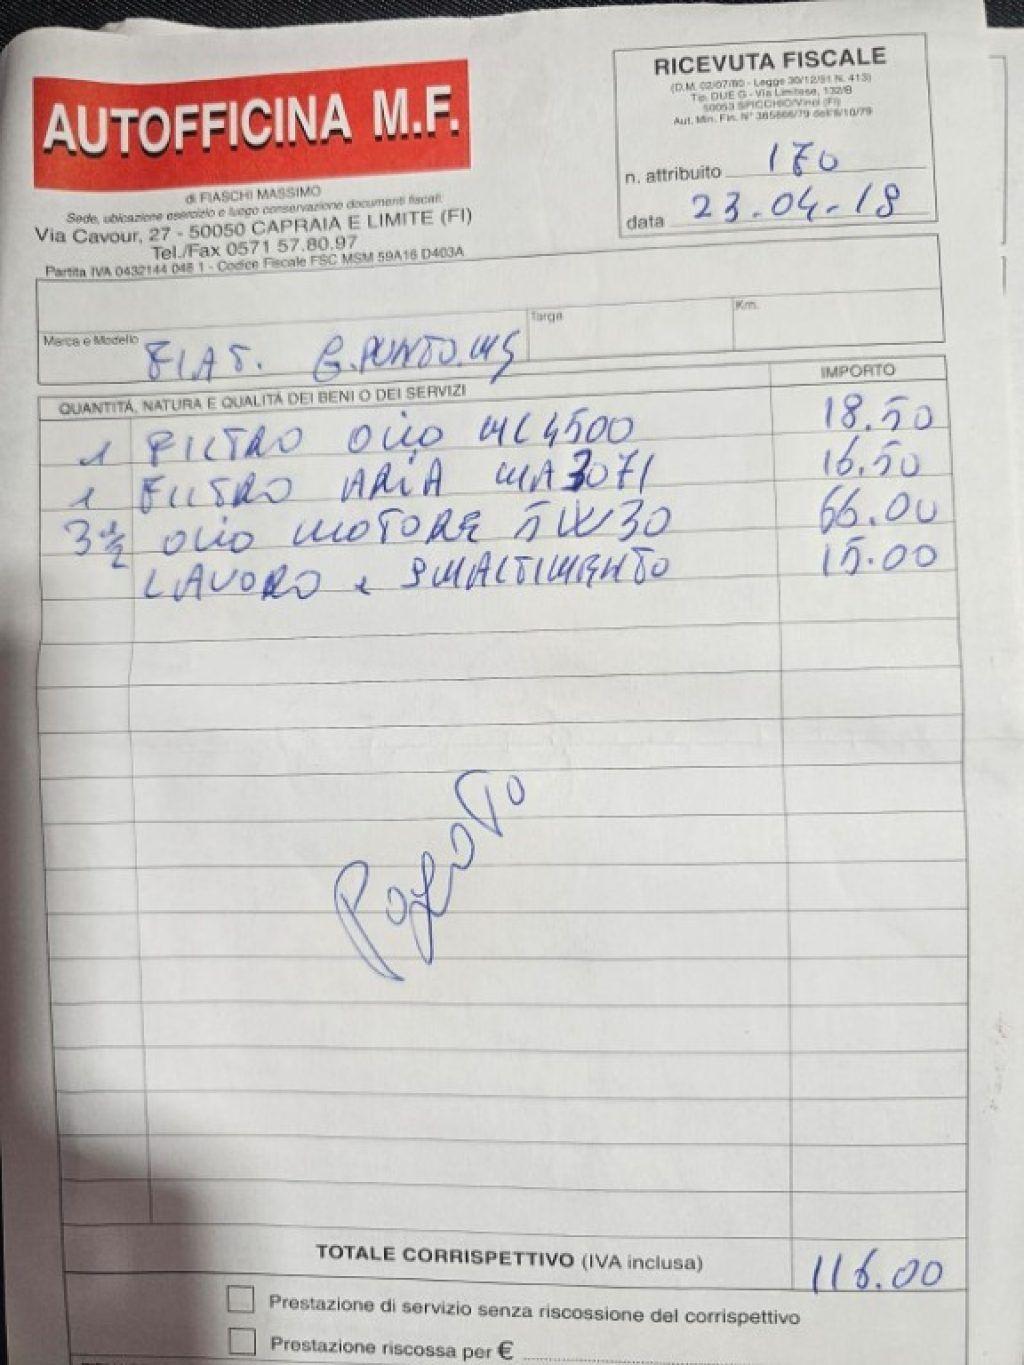 AUTOFFICINA M.F.
di FIASCHI MASSIMO
Sede, ubicazione esercizio e luogo conservazione documenti fiscali:
Via Cavour, 27 - 50050 CAPRAIA E LIMITE (FI)
Tel./Fax 0571 57.80.97
Partita IVA 0432144 048 1 - Codice Fiscale FSC MSM 59A16 D403A
RICEVUTA FISCALE
(D.M. 02/07/80 - Legge 30/12/91 N. 413)
Tip. DUE G - Via Limitese, 132/B
50053 SPICCHIO/Vinci (FI)
Aut. Min. Fin. N° 365866/79 dell'8/10/79
n. attribuito 170
data 23.04.18
Marca e Modello FIAT. G.PUNTO.
Targa
Km.
QUANTITÀ, NATURA E QUALITÀ DEI BENI O DEI SERVIZI IMPORTO
1 FILTRO OLIO ML4500 18.50
1 FILTRO ARIA MA3071 16.50
3 1/2 OLIO MOTORE 5W30 66.00
LAVORO e SMALTIMENTO 15.00
PAGATO
TOTALE CORRISPETTIVO (IVA inclusa) 116.00
Prestazione di servizio senza riscossione del corrispettivo
Prestazione riscossa per €